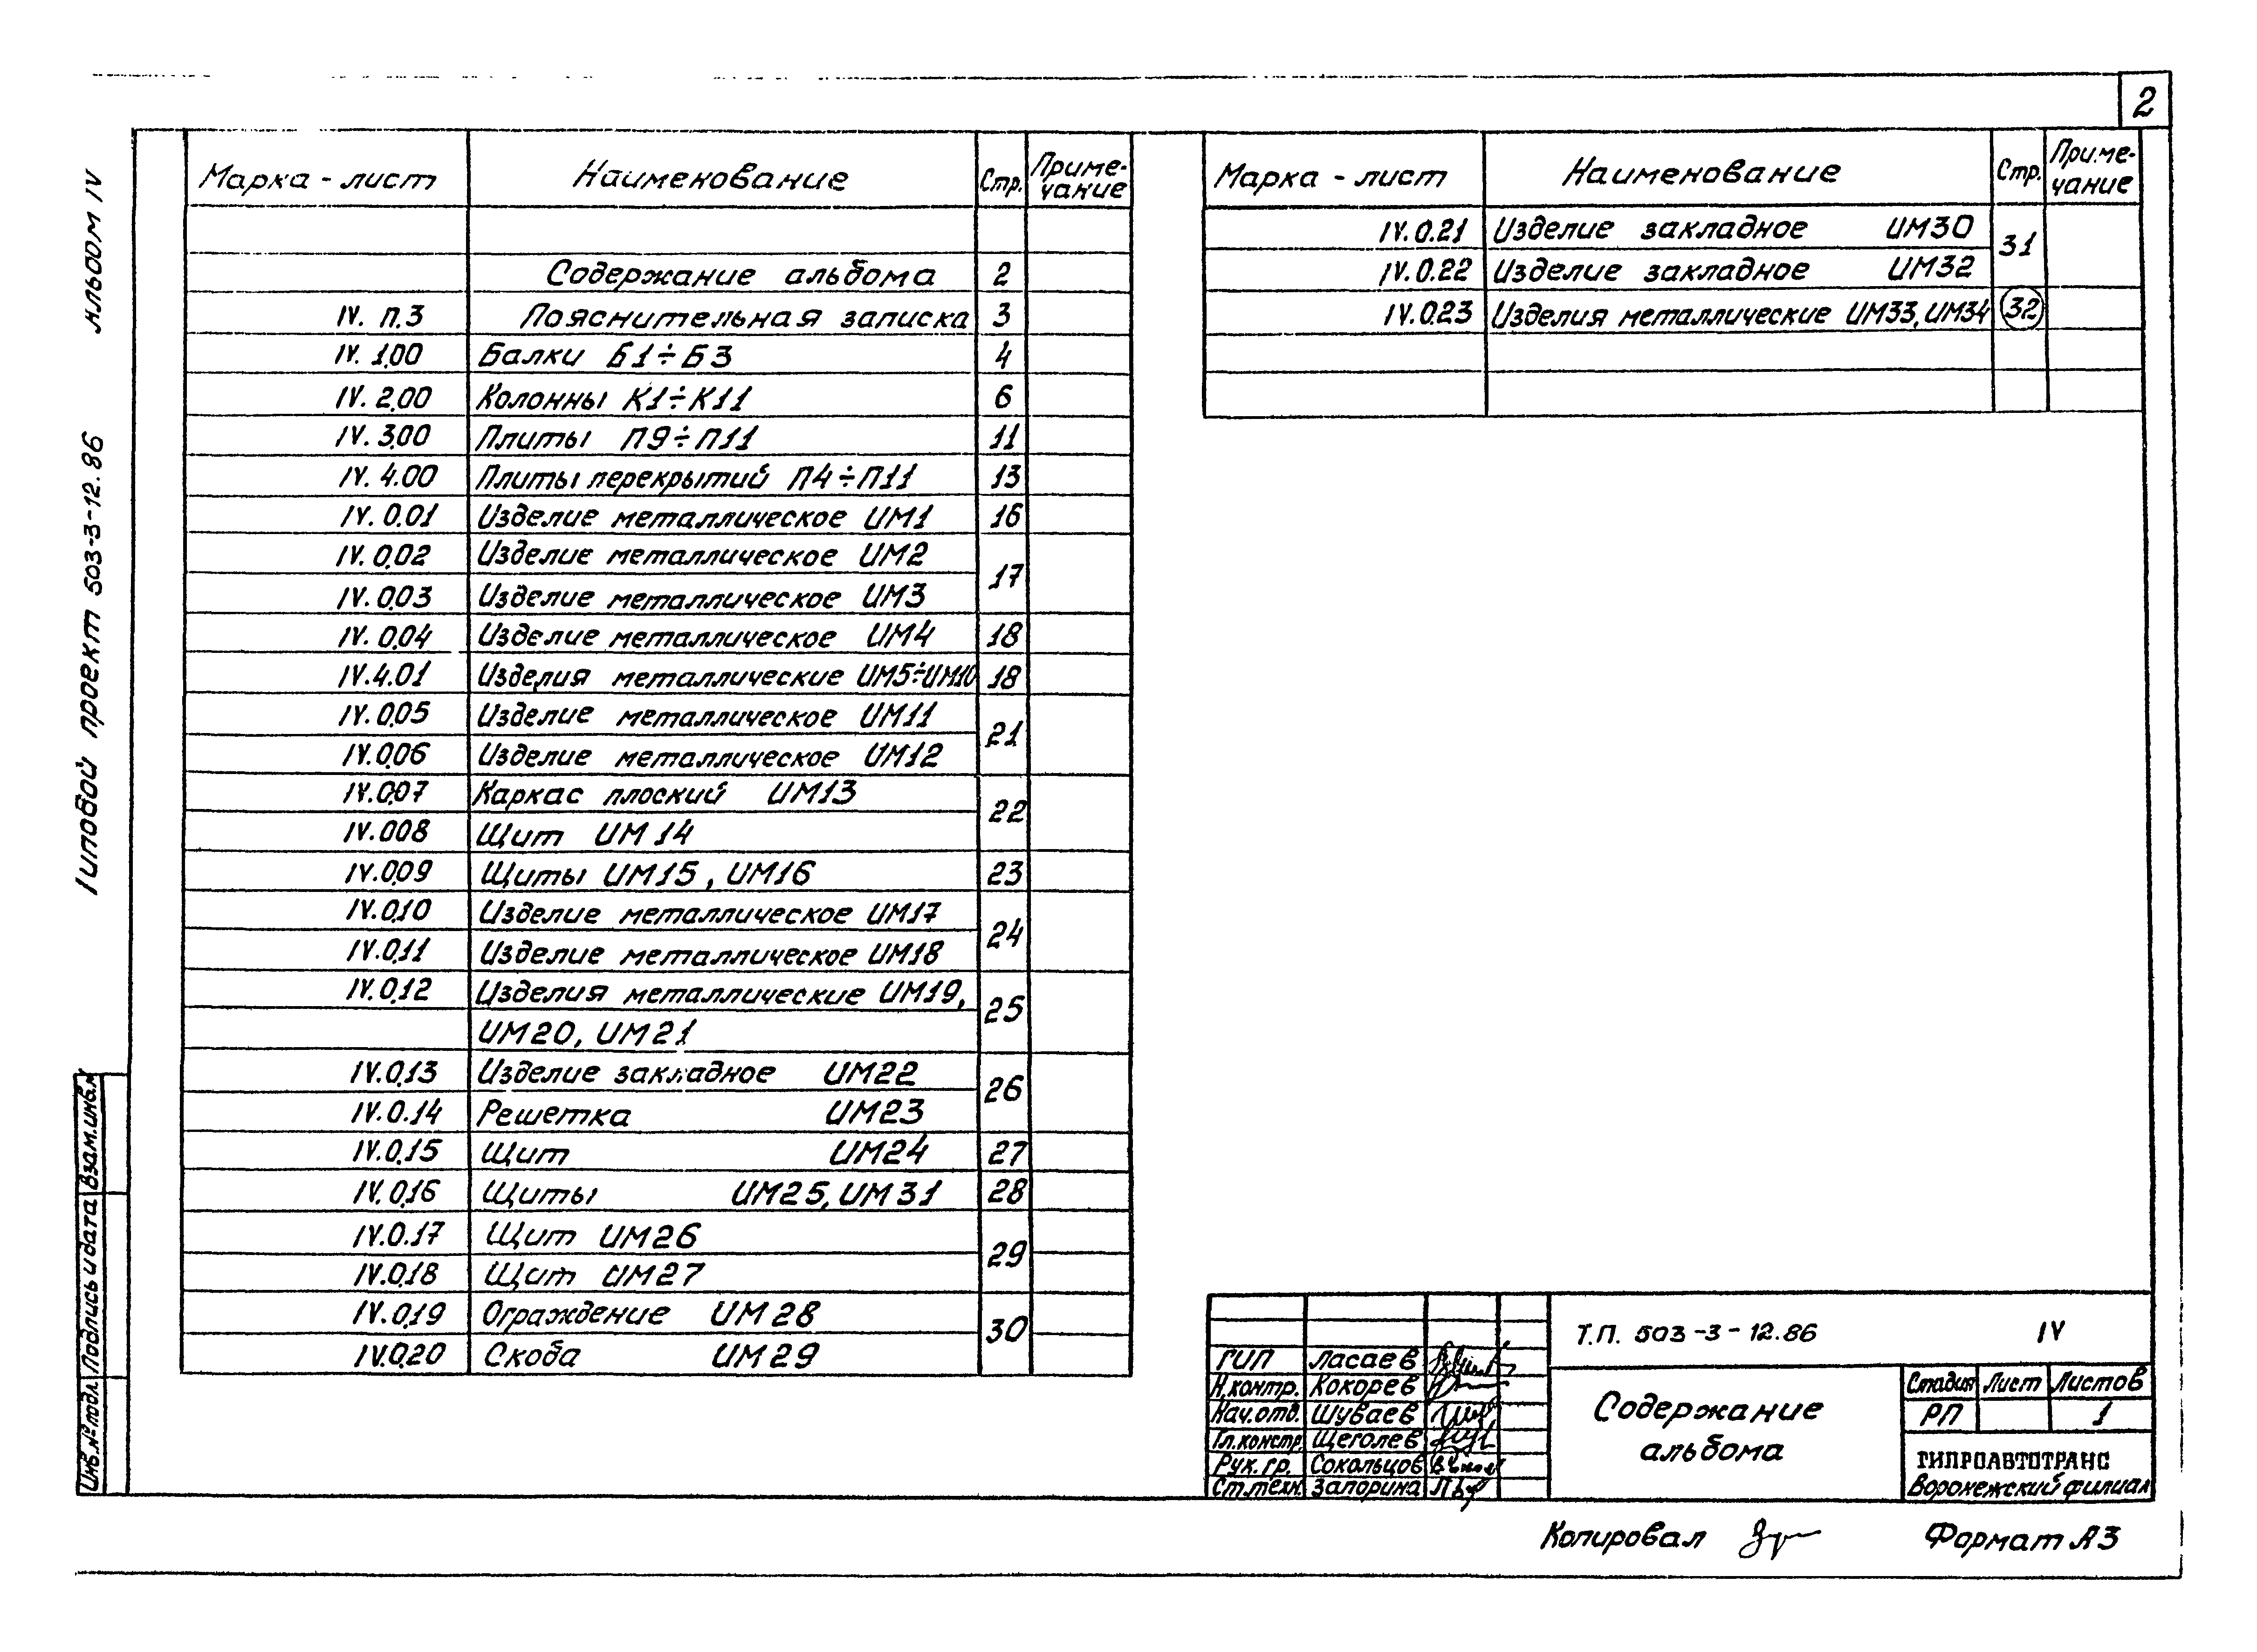 2
Альбом IV
Типовой проект 503-3-12.86
Марка - лист Наименование Стр. Приме-чание
Содержание альбома 2
IV. П.3 Пояснительная записка 3
IV. 1.00 Балки Б1÷Б3 4
IV. 2.00 Колонны К1÷К11 6
IV. 3.00 Плиты П9÷П11 11
IV. 4.00 Плиты перекрытий П4÷П11 13
IV. 0.01 Изделие металлическое ИМ1 16
IV. 0.02 Изделие металлическое ИМ2 17
IV. 0.03 Изделие металлическое ИМ3
IV. 0.04 Изделие металлическое ИМ4 18
IV.4.01 Изделия металлические ИМ5÷ИМ10 18
IV. 0.05 Изделие металлическое ИМ11 21
IV.0.06 Изделие металлическое ИМ12
IV.0.07 Каркас плоский ИМ13 22
IV.008 Щит ИМ14
IV.0.09 Щиты ИМ15, ИМ16 23
IV.0.10 Изделие металлическое ИМ17 24
IV.0.11 Изделие металлическое ИМ18
IV.0.12 Изделия металлические ИМ19, 25
ИМ20, ИМ21
IV.0.13 Изделие закладное ИМ22 26
IV.0.14 Решетка ИМ23
IV.0.15 Щит ИМ24 27
IV.0.16 Щиты ИМ25, ИМ31 28
IV.0.17 Щит ИМ26 29
IV.0.18 Щит ИМ27
IV.0.19 Ограждение ИМ28 30
IV.0.20 Скоба ИМ29
Марка - лист Наименование Стр. Приме-чание
IV.0.21 Изделие закладное ИМ30 31
IV.0.22 Изделие закладное ИМ32
IV.0.23 Изделия металлические ИМ33, ИМ34 32
Взам.инв.№
Подпись и дата
Инв.№ подл.
ГИП Ласаев
Н.контр. Кокорев
Нач.отд. Шуваев
Гл.констр. Щеголев
Рук.гр. Сокольцов
Ст.техн. Запорина
Т.П. 503-3-12.86 IV
Содержание
альбома
Стадия Лист Листов
РП 1
ГИПРОАВТОТРАНС
Воронежский филиал
Копировал
Формат А3